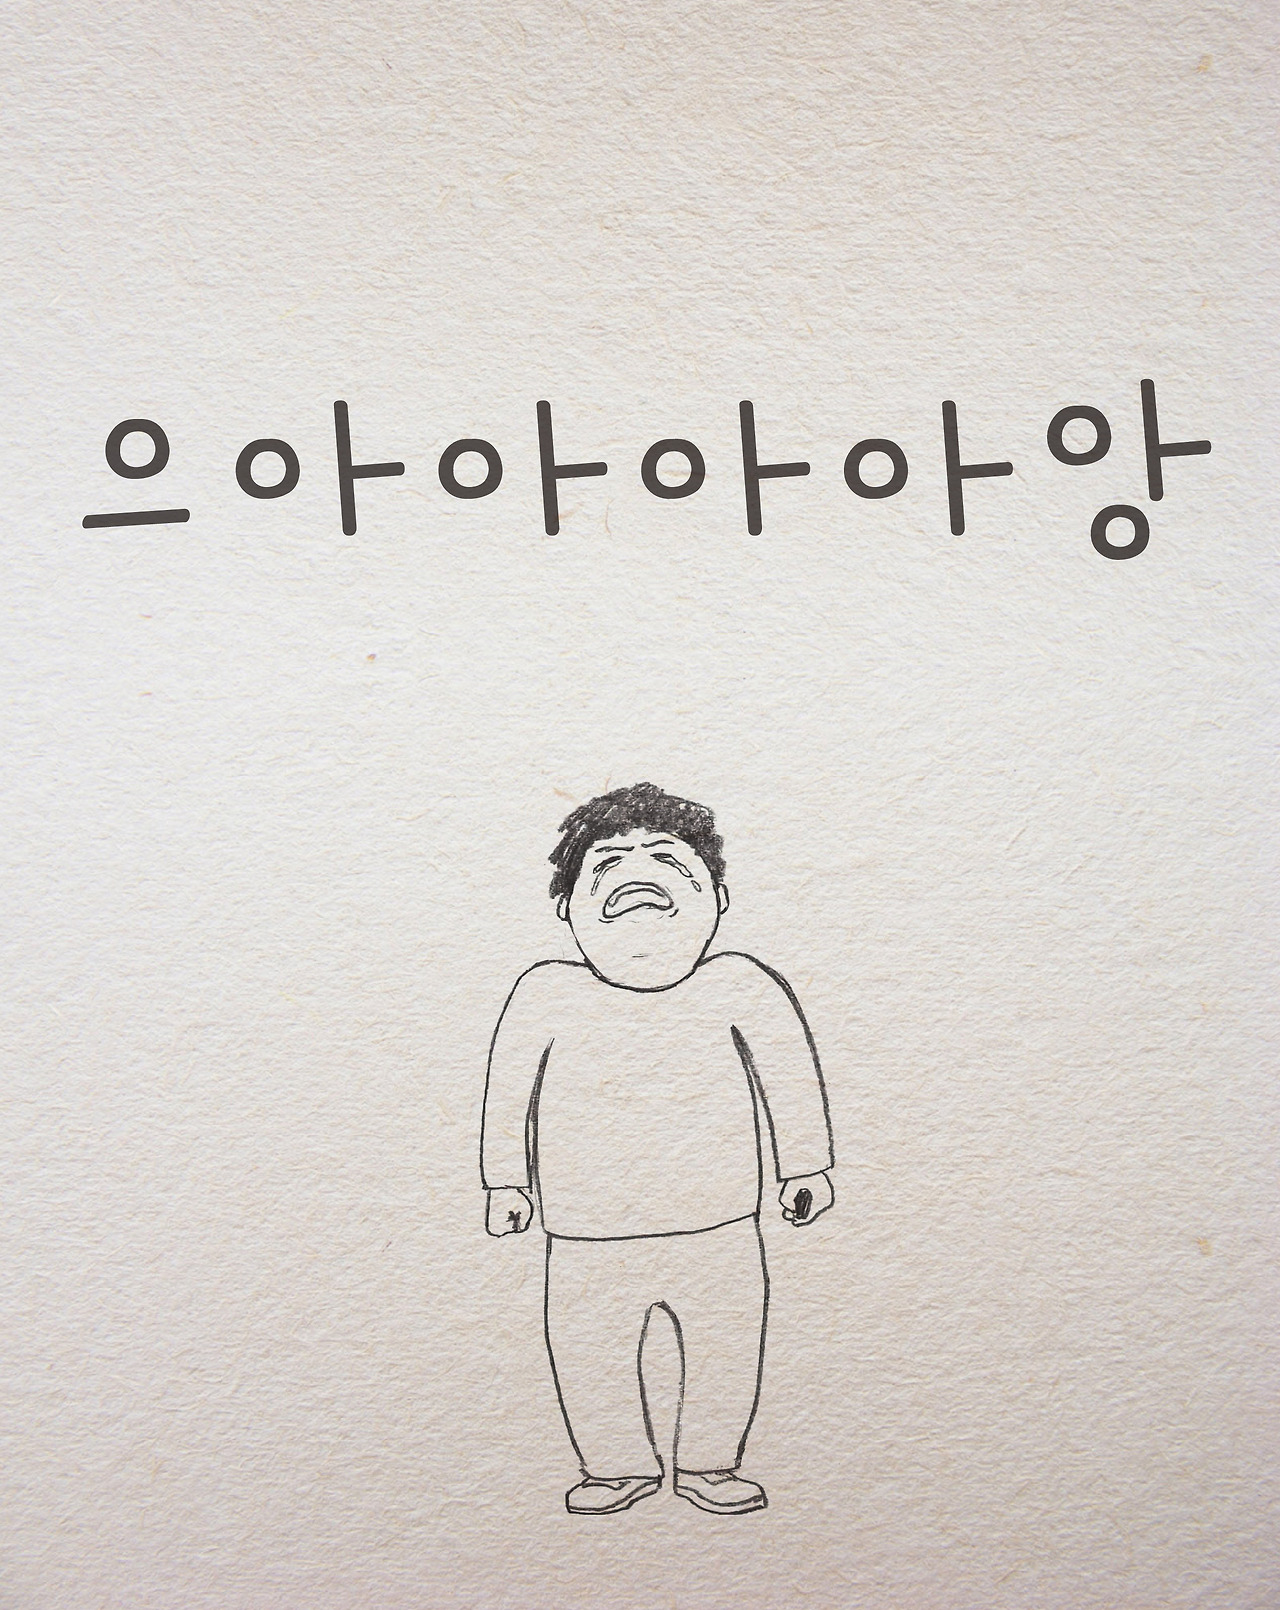 으아아아아앙